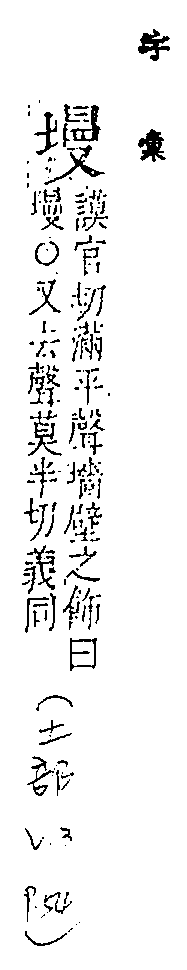 字彙
墁 謨官切滿平聲墻壁之飾曰
墁○又去聲莫半切義同
(土部 V.3 P.54)